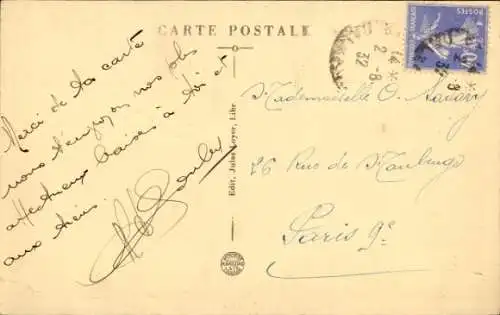 CARTE POSTALE
Merci de la carte
nous envoyons nos plus
affectueux baisers à toi et
aux tiens.
Edit. Jules Loyer, Libr.
14 * 2-8 32
POSTES
FRANÇAISE
Mademoiselle O.
26 Rue de Maubeuge
Paris 9e